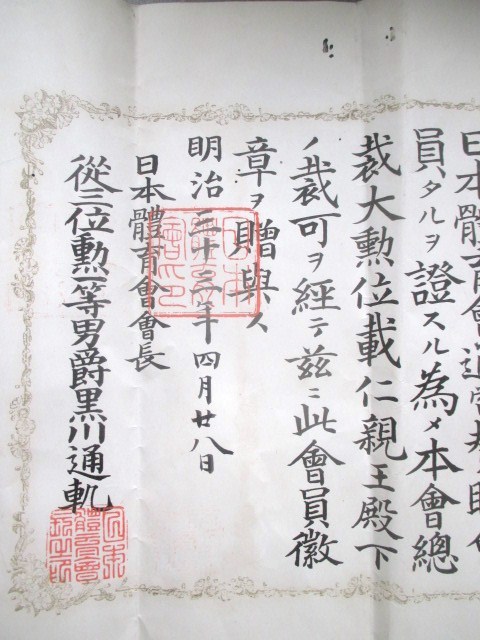 日本體育會
員タルヲ證スル為メ本會總
裁大勲位載仁親王殿下
ノ裁可ヲ經テ茲ニ此會員徽
章ヲ贈與ス
明治三十三年四月廿八日
日本體育會會長
從三位勲等男爵黒川通軌